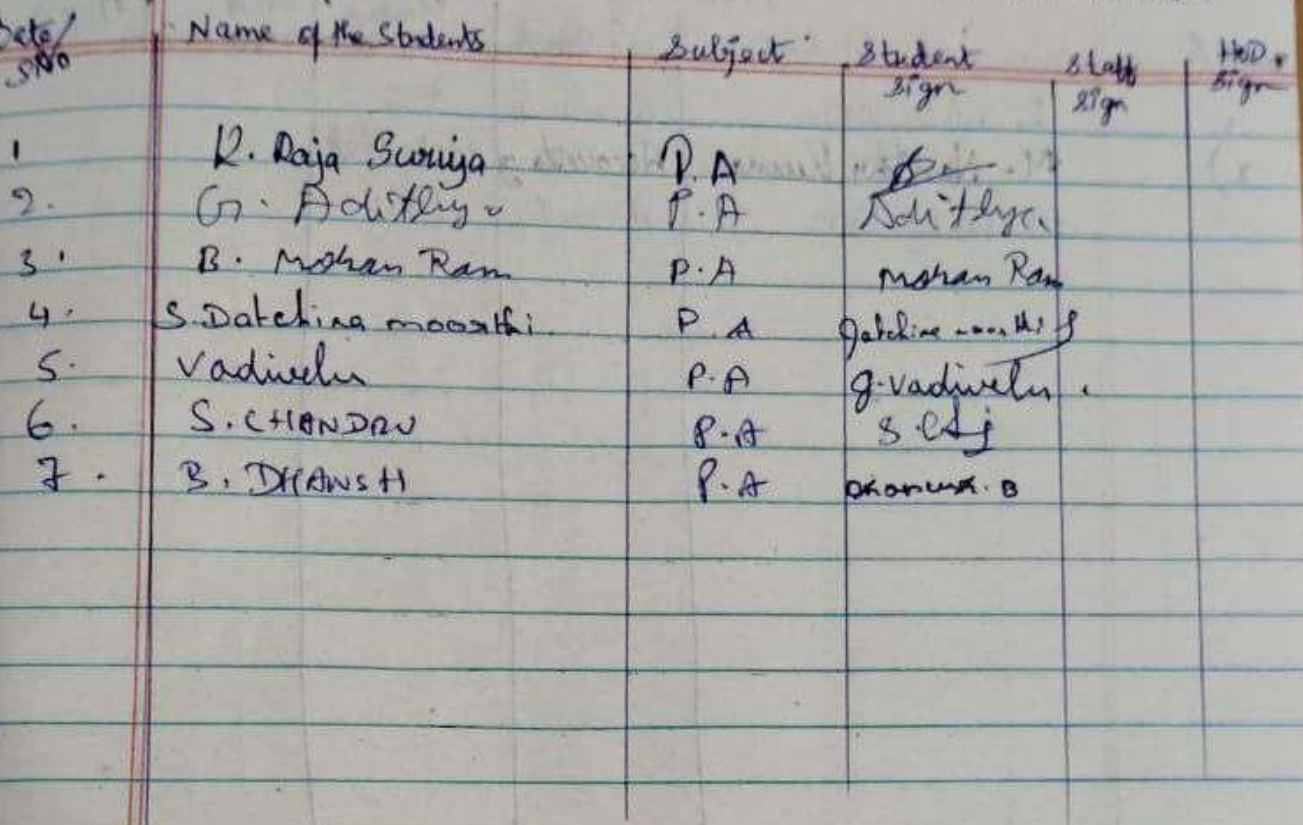 Date/ Name of the Students Subject Student Staff HOD.
S.No Sign Sign Sign
1 R. Raja Suriya P.A
2. G. Adithya P.A Adithya.
3. B. Mohan Ram P.A Mohan Ram
4. S.Datchina moorthi P.A Datchina moorthi S
5. Vadivelu P.A g.vadivelu.
6. S.CHANDRU P.A
7. B. DHANUSH P.A Dhanush.B